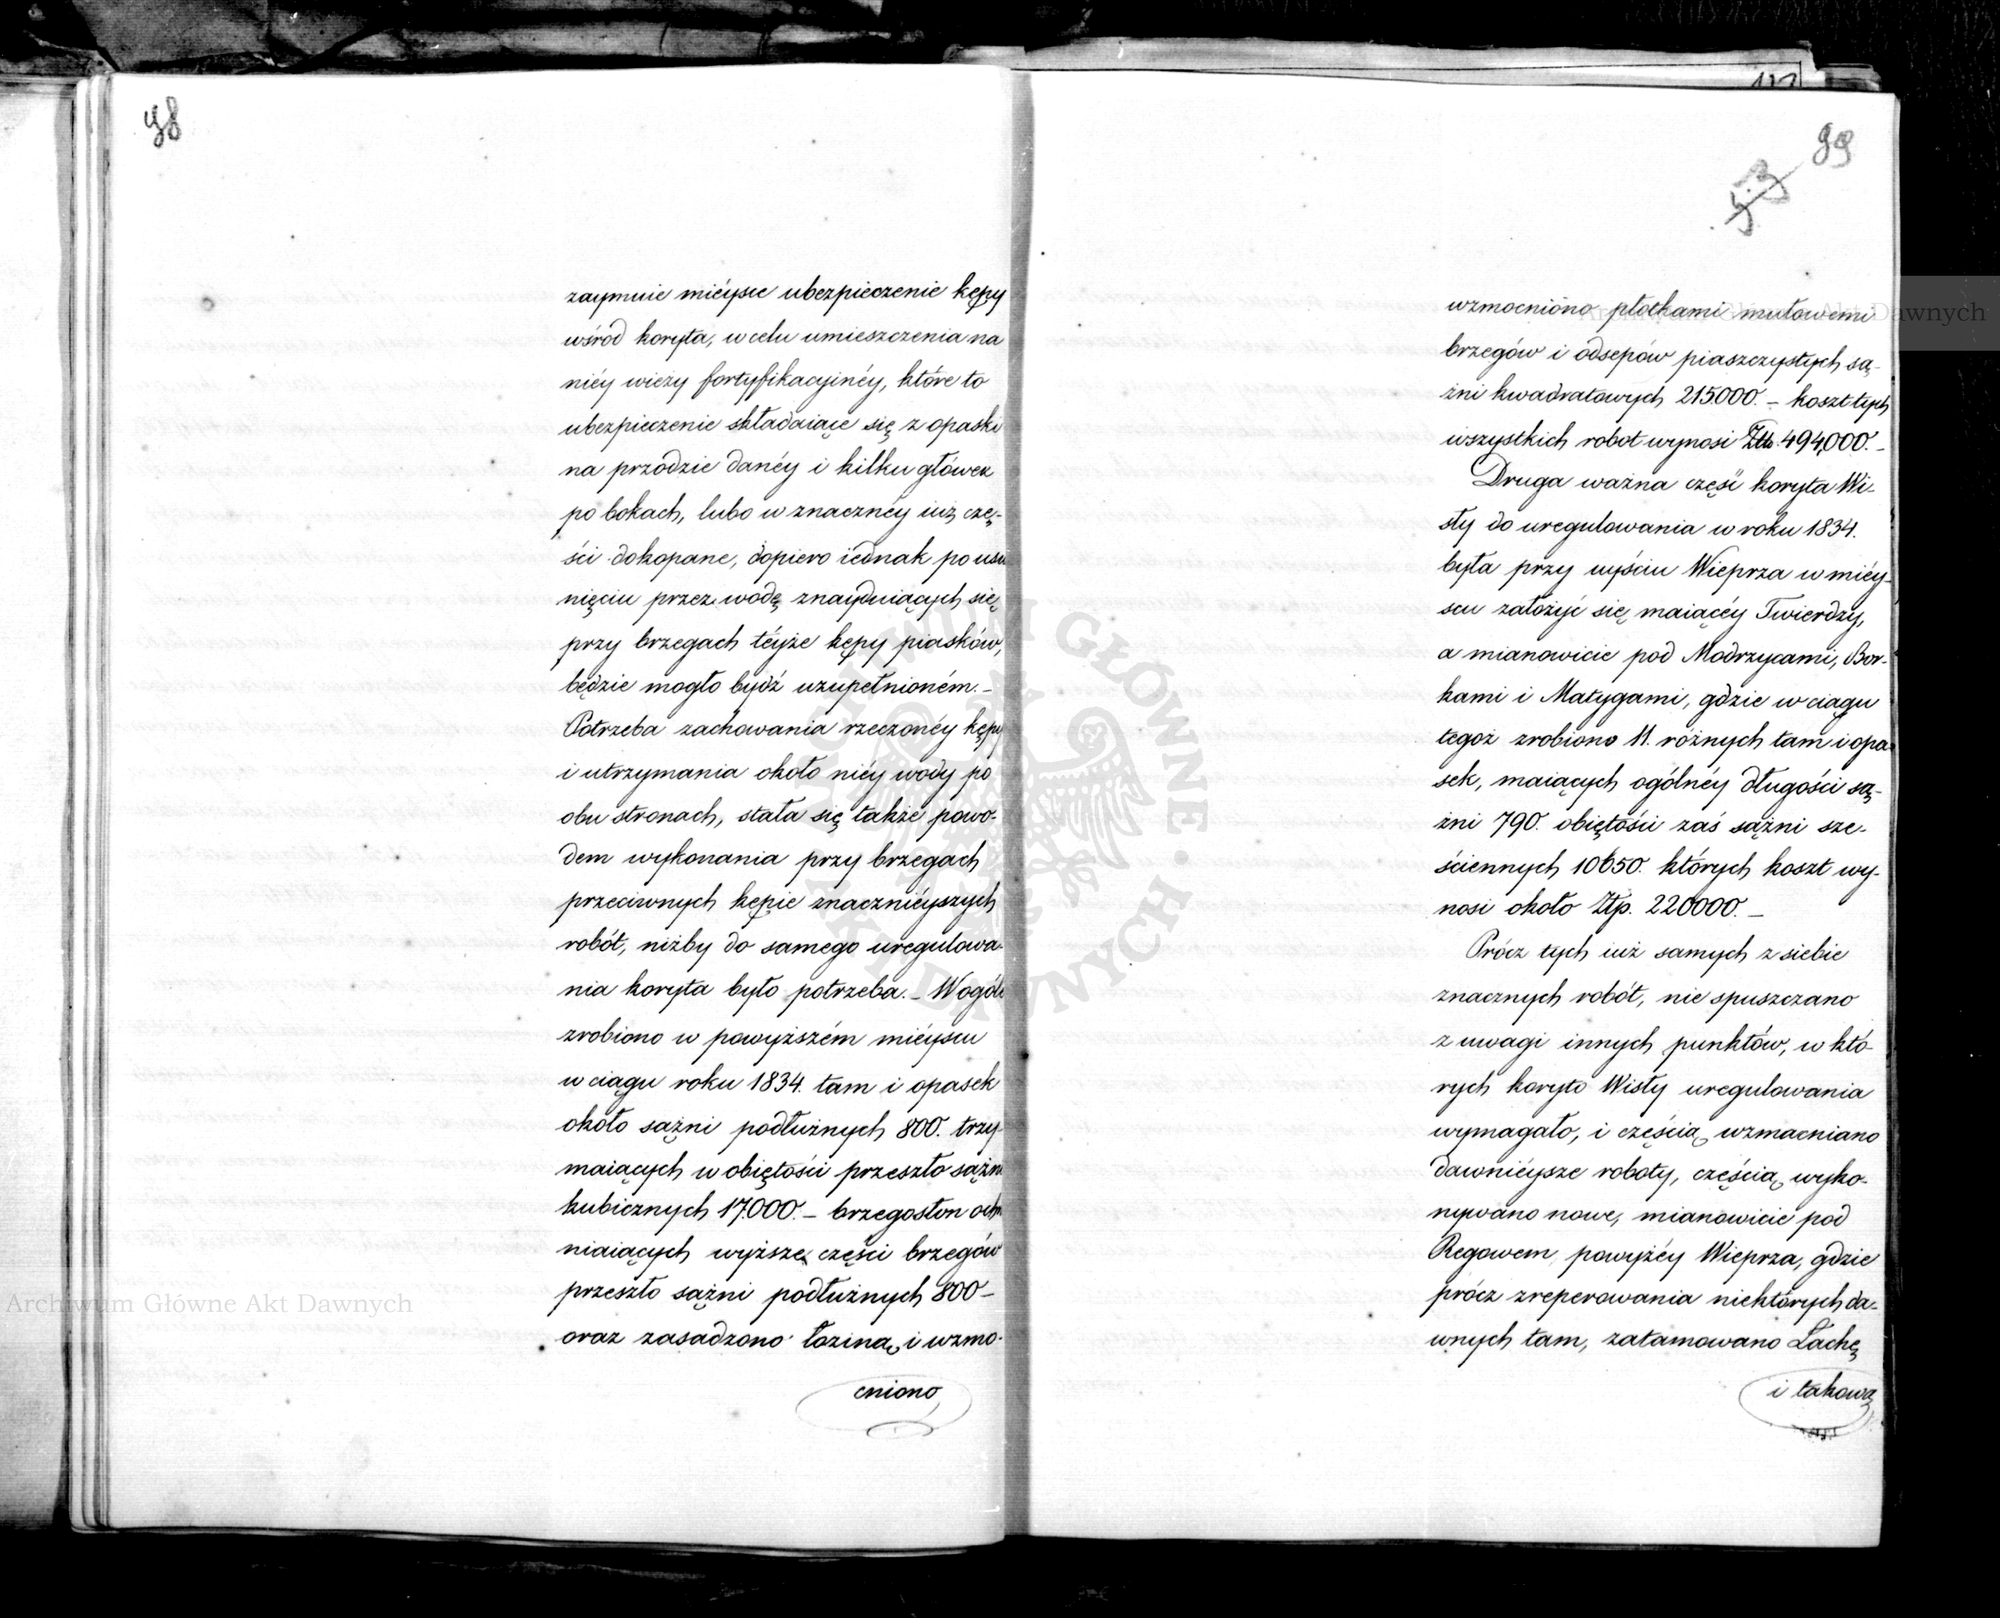 98
zaymuie mieysce ubezpieczenie kępy
wśród koryta, w celu umieszczenia na
niéy wieży fortyfikacyinéy, które to
ubezpieczenie składaiące się z opaski
na przodzie danéy i kilku główek
po bokach, lubo w znacznéy iuż czę-
ści dokopane, dopiero iednak po usu
nięciu przez wodę znayduiących się
przy brzegach téyże kępy piasków,
będzie mogło bydź uzupełnioném. –
Potrzeba zachowania rzeczonéy kępy
i utrzymania około niéy wody po
obu stronach, stała się także powo-
dem wykonania przy brzegach
przeciwnych kępie znacznieyszych
robót, niżby do samego uregulowa-
nia koryta było potrzeba. – Wogóle
zrobiono w powyższém mieyscu
w ciągu roku 1834. tam i opasek
około sążni podłużnych 800. trzy-
maiących w obiętości przeszło sążni
kubicznych 17.000. – brzegosłon och
niaiących wyższe części brzegów
przeszło sążni podłużnych 800 –
oraz zasadzono łoziną i wzmo-
cniono,
99
53
wzmocniono płotkami mułowemi
brzegów i odsepów piaszczystych są-
żni kwadratowych 215.000. – koszt tych
wszystkich robot wynosi Złp. 494,000. –
Druga ważna część koryta Wi-
sły do uregulowania w roku 1834.
była przy uyściu Wieprza w miéy-
scu założyć się maiącéy Twierdzy,
a mianowicie pod Modrzycami, Bor-
kami i Matygami, gdzie w ciągu
tegoż zrobiono 11. różnych tam i opa-
sek, maiących ogólnéy długości są-
żni 790. obiętości zaś sążni sze-
ściennych 10650. których koszt wy-
nosi około Złp. 220000. –
Prócz tych iuż samych z siebie
znacznych robót, nie spuszczano
z uwagi innych punktów, w któ-
rych koryto Wisły uregulowania
wymagało, i częścią wzmacniano
dawniéysze roboty, częścią wyko-
nywano nowe, mianowicie pod
Regowem, powyżéy Wieprza, gdzie
prócz zreperowania niektórych da-
wnych tam, zatamowano Łachę
i takową
Archiwum Główne Akt Dawnych
Archiwum Główne Akt Dawnych
ARCHIWUM GŁÓWNE AKT DAWNYCH